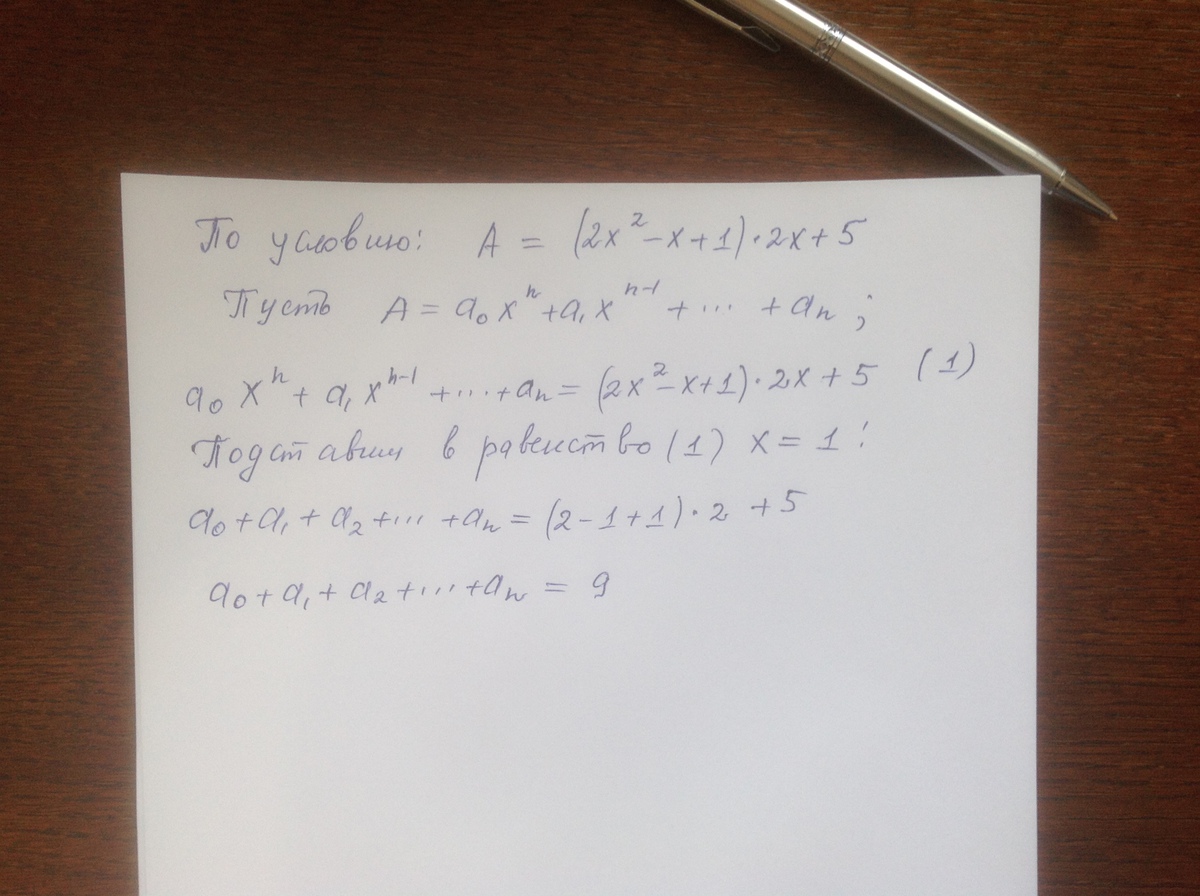 По условию: A = (2x²-x+1)·2x+5
Пусть A = a₀xⁿ+a₁xⁿ⁻¹+...+aₙ;
a₀xⁿ+a₁xⁿ⁻¹+...+aₙ=(2x²-x+1)·2x+5 (1)
Подставим в равенство (1) x=1:
a₀+a₁+a₂+...+aₙ=(2-1+1)·2+5
a₀+a₁+a₂+...+aₙ = 9